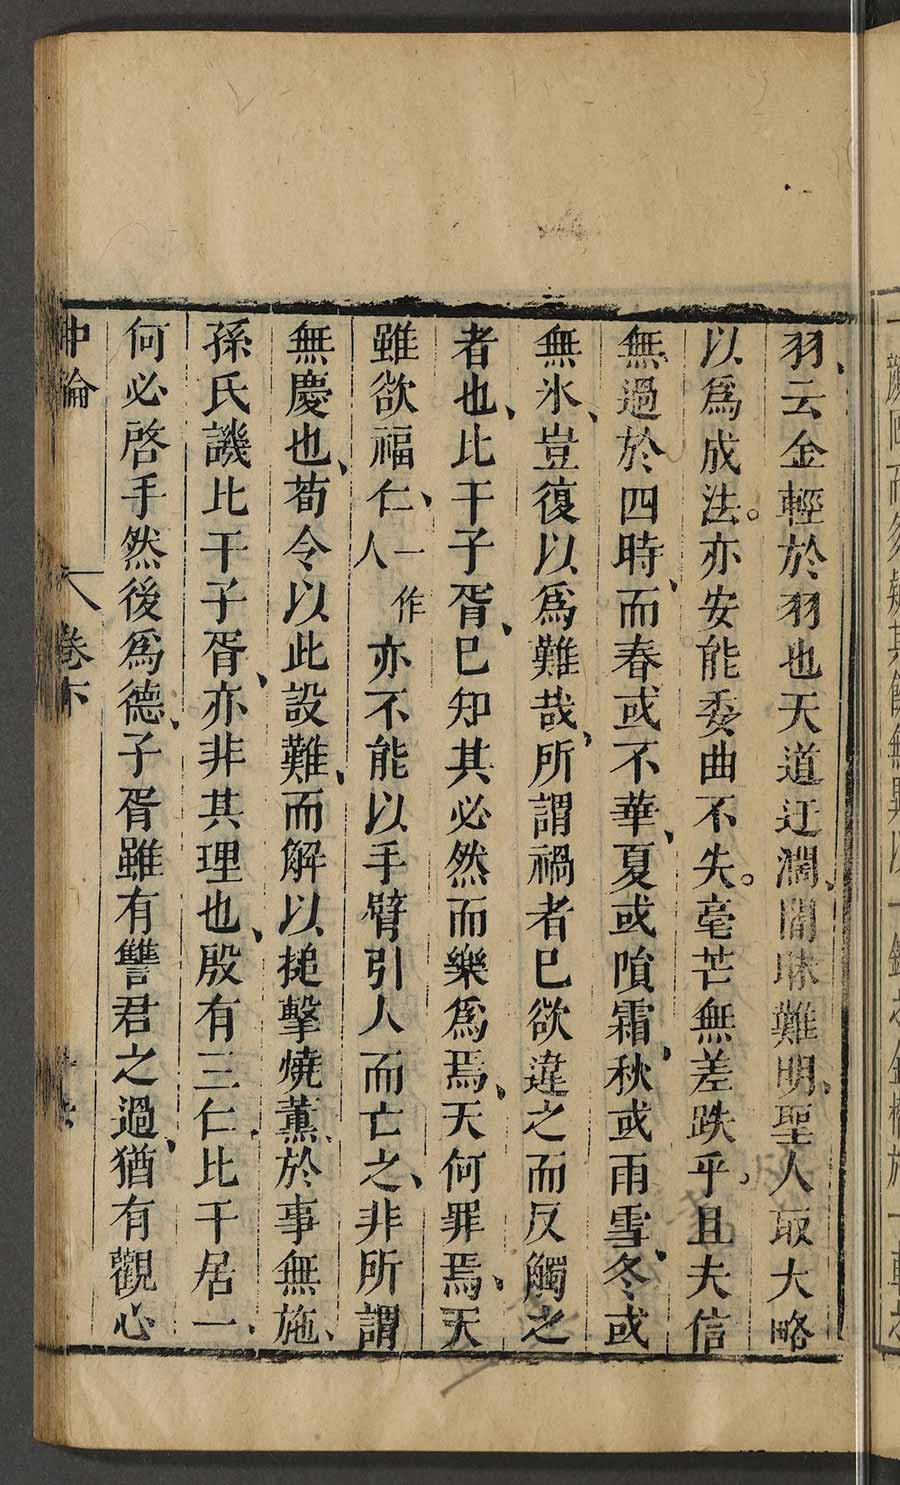 羽、云金輕於羽也天道迂濶、闇昧難明、聖人取大略
以爲成法。亦安能委曲不失。毫芒無差跌乎。且夫信
無過於四時、而春或不華、夏或隕霜、秋或雨雪、冬或
無氷、豈復以爲難哉、所謂禍者已欲違之而反觸之
者也、比干子胥、已知其必然而樂爲焉、天何罪焉、天
雖欲福仁、一作人亦不能以手臂引人而亡之、非所謂
無慶也、荀令以此設難、而解以搥擊燒薰、於事無施、
孫氏譏比干子胥、亦非其理也、殷有三仁、比干居一、
何必啓手然後爲德、子胥雖有讐君之過、猶有觀心
中論 卷下